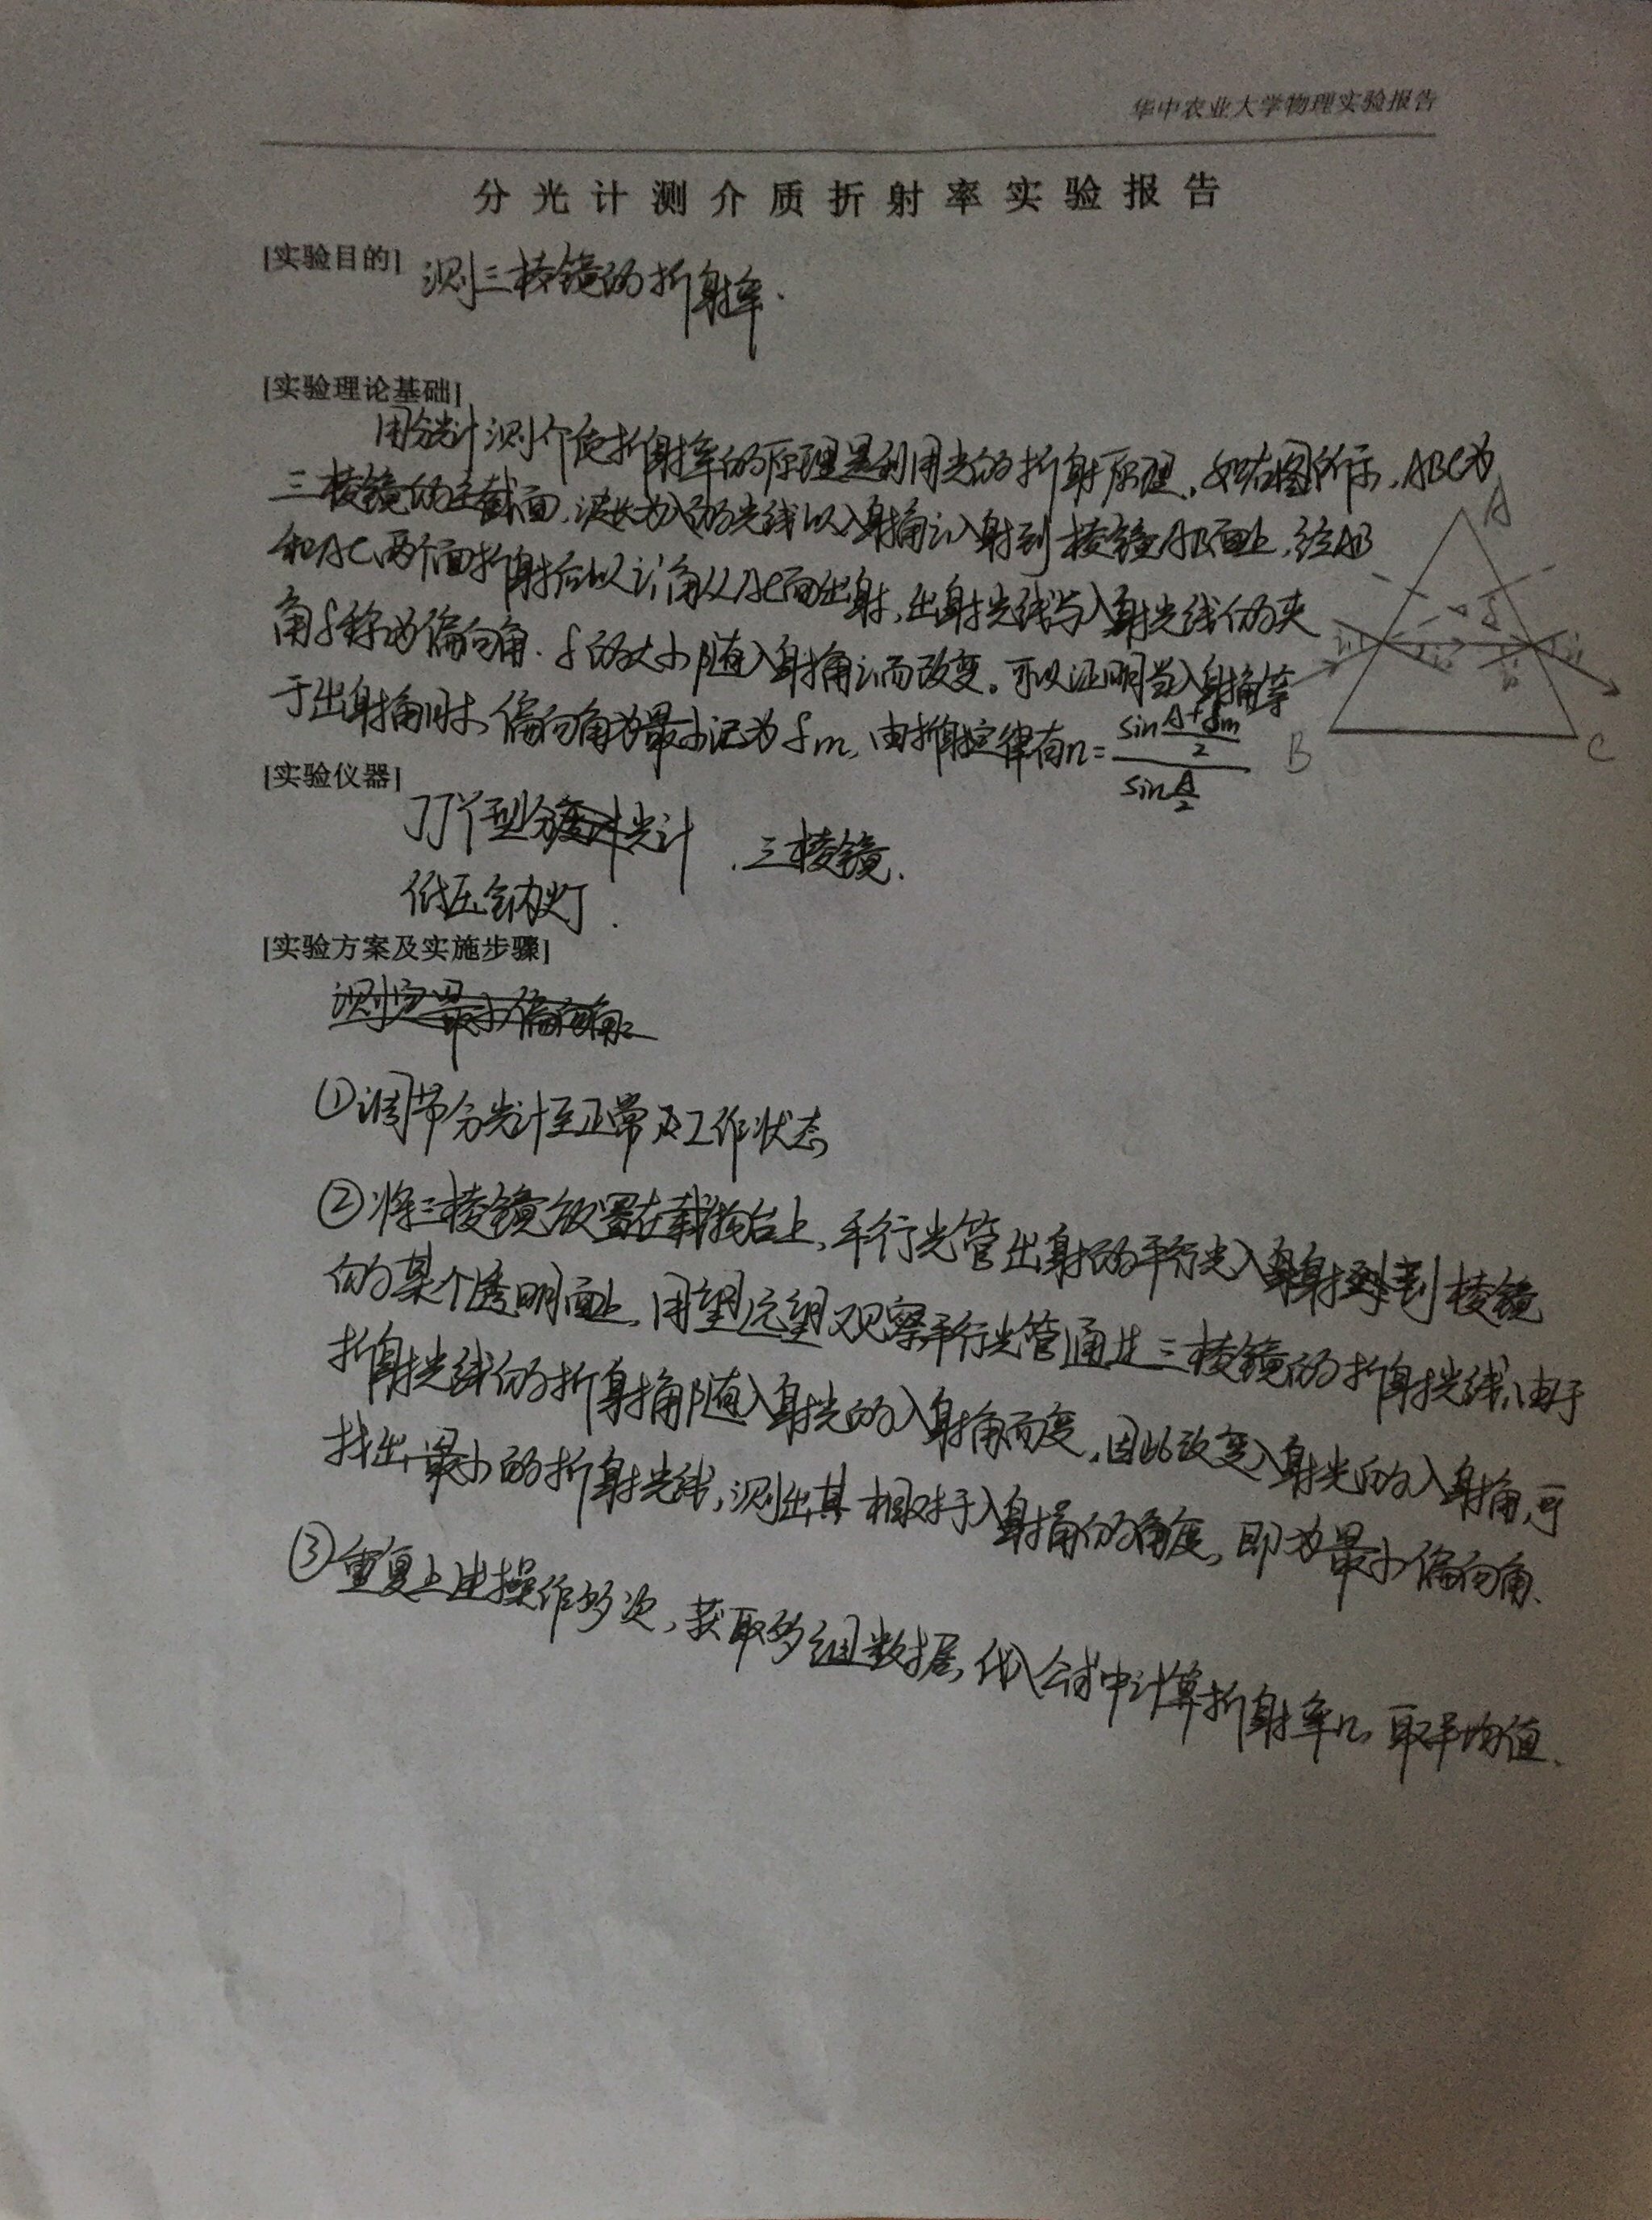 华中农业大学物理实验报告
分光计测介质折射率实验报告
[实验目的] 测三棱镜的折射率.
[实验理论基础]
用分光计测介质折射率的原理是利用光的折射原理。如右图所示,ABC为
三棱镜的主截面,波长为λ的光线以入射角i₁入射到棱镜AB面上,经AB
和AC两个面折射后以i₁'角从AC面出射,出射光线与入射光线的夹
角δ称为偏向角.δ的大小随入射角i₁而改变。可以证明当入射角等
于出射角时,偏向角为最小记为δm,由折射定律有n= sin (A+δm)/2 / sin A/2
A
B
C
[实验仪器]
JJY型分光计 、三棱镜.
低压钠灯.
[实验方案及实施步骤]
测定最小偏向角
①调节分光计至正常工作状态
②将三棱镜放置在载物台上,平行光管出射的平行光入射到棱镜
的某个透明面上,用望远望观察平行光管通过三棱镜的折射光线,由于
折射光线的折射角随入射光的入射角而变,因此改变入射光的入射角,可
找出最小的折射光线,测出其相对于入射角的角度,即为最小偏向角.
③重复上述操作多次,获取多组数据,代入公式中计算折射率n,取平均值.